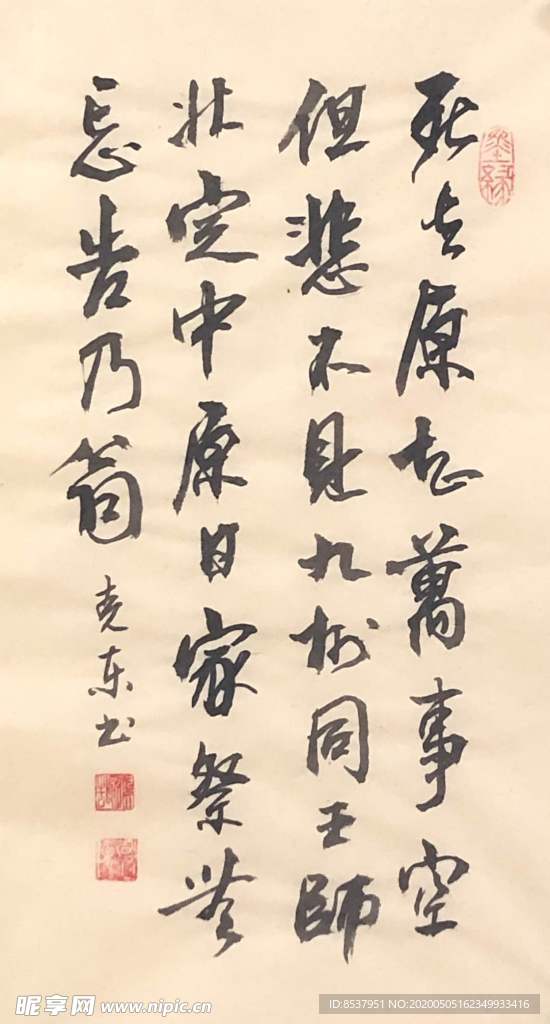 死去原知萬事空
但悲不見九州同王師
北定中原日家祭無
忘告乃翁
克东书
昵享网 www.nipic.cn
ID:8537951 NO:20200505162349933416